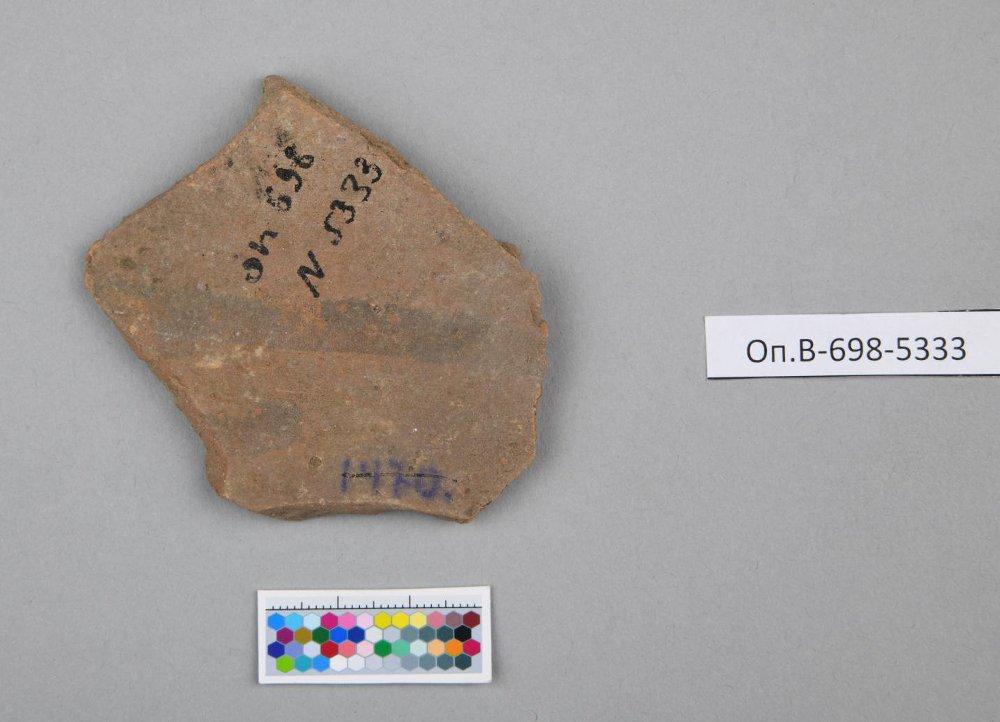 оп 698
N 5333
1470.
Оп.В-698-5333